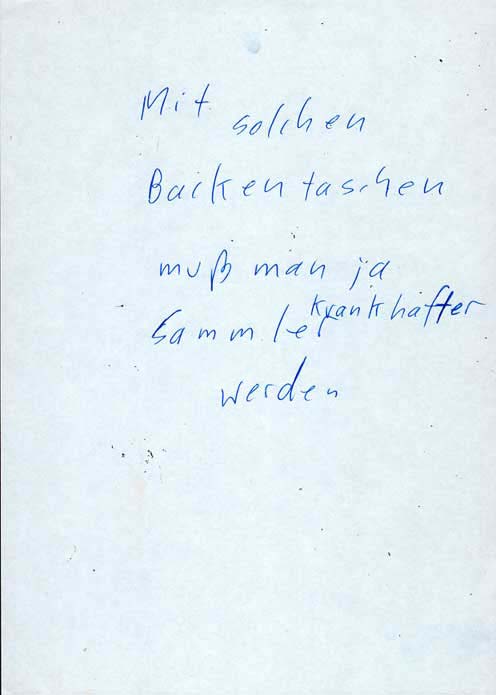 Mit solchen
Backentaschen
muß man ja
krankhafter
Sammler
werden